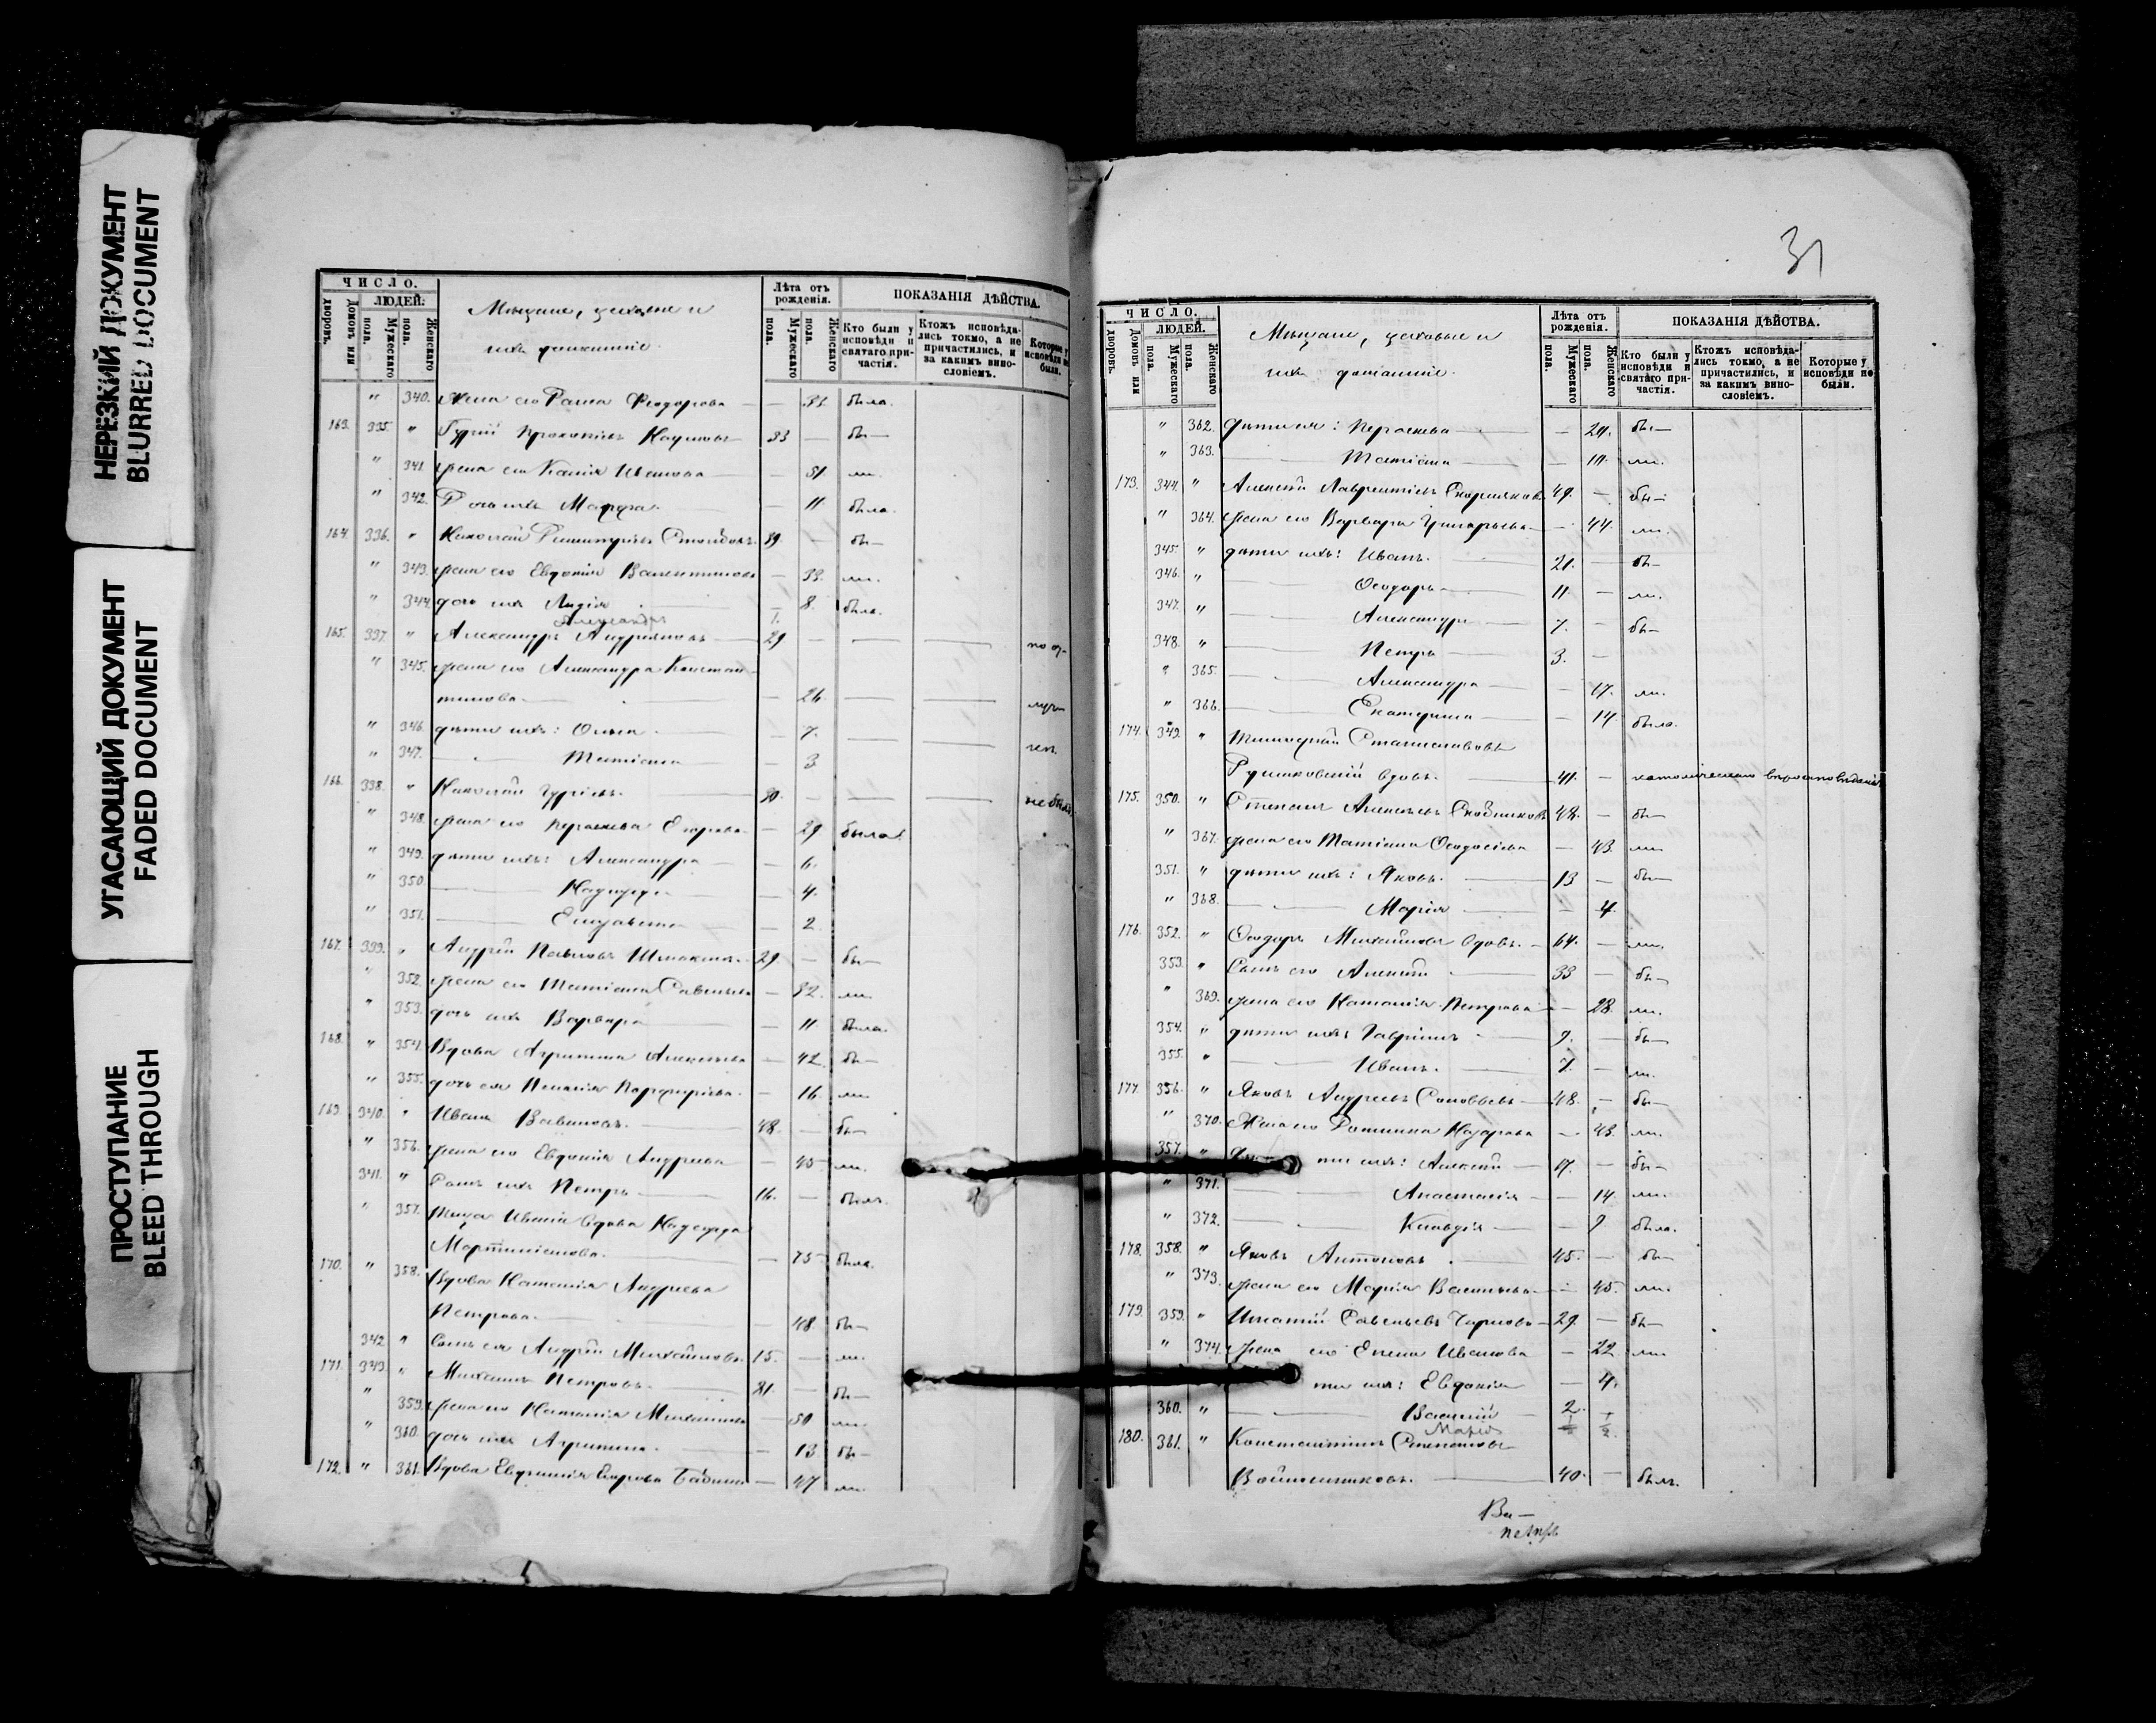 НЕРЕЗКИЙ ДОКУМЕНТ
BLURRED DOCUMENT
УГАСАЮЩИЙ ДОКУМЕНТ
FADED DOCUMENT
ПРОСТУПАНИЕ
BLEED THROUGH
ЧИСЛО.
ЛЮДЕЙ:
Домовъ или дворовъ.
Мужескаго пола.
Женскаго пола.
Мѣщане, цеховые и
ихъ домашніе.
Лѣта отъ рожденія.
Мужескаго пола.
Женскаго пола.
ПОКАЗАНІЯ ДѢЙСТВА.
Кто были у исповѣди и святаго причастія.
Ктожъ исповѣдались токмо, а не причастились, и за какимъ винословіемъ.
Которые у исповѣди не были.
" 340. Жена его Раиса Ѳеодорова — 31 была.
163. 335. " Гурій Прокопіевъ Наумовъ 33 — бы—
" 341 жена его Ксенія Иванова — 51 ли.
" 342. Дочь ихъ Марѳа — 11 была.
164. 336. " Николай Димитріевъ — бы—
" 343. жена его Евдокія Валентинова — 33. ли.
" 344. дочь ихъ Лидія — 8. была.
Александръ 1.
165. 337. " Александръ Андріяновъ 29 —
" 345. жена его Александра Констан-
тинова — 26
" 346. дѣти ихъ: Ольга — 7.
" 347. Татіана — 3
166. 338. " Николай Гурьевъ. 30. — не были.
" 348. жена его Параскева Егорова — 29 была
" 349. дѣти ихъ: Александра — 6.
" 350. Надежда — 4.
" 351. Елизавета — 2
167. 339. " Андрей Павловъ 29 — бы—
" 352. жена его Татіана Савельева — 32. ли.
" 353. дочь ихъ Варвара — 11. была.
168. " 354. Вдова Агриппина Алексѣева — 42 бы—
" 355. дочь ея Пелагія Порфирьева — 16. ли.
169. 340. " Иванъ Вавиловъ. 48. — бы—
" 356. жена его Евдокія Андреева — 45 ли.
341. " Сынъ ихъ Петръ 16. — былъ.
" 357. Теща Ивана вдова Надежда
Мартиніанова. — 75 была.
170. " 358. Вдова Наталія Андреева
Петрова. — 48. бы—
342 " Сынъ ея Андрей Михайловъ 15. — ли.
171. 343. " Михаилъ Петровъ. — бы—
" 359. жена его Наталія Михайлова — 50 ли.
" 360. дочь ихъ Агриппина. — 13 бы—
172. " 361. Вдова Евфимія Егорова — 47 ли.
31
ЧИСЛО.
ЛЮДЕЙ.
Домовъ или дворовъ.
Мужескаго пола.
Женскаго пола.
Мѣщане, цеховые и
ихъ домашніе.
Лѣта отъ рожденія.
Мужескаго пола.
Женскаго пола.
ПОКАЗАНІЯ ДѢЙСТВА.
Кто были у исповѣди и святаго причастія.
Ктожъ исповѣдались токмо, а не причастились, и за какимъ винословіемъ.
Которые у исповѣди не были.
" 362. Дѣти ея: Параскева — бы—
" 363. Татіана — ли.
173. 344. " Алексѣй Лаврентіевъ 49. — бы—
" 364. жена его Варвара Григорьева — 44. ли.
345. " дѣти ихъ: Иванъ. 21. — бы—
346. " Ѳеодоръ 11. — ли.
347. " Александръ 7. — бы—
348. " Петръ 3. —
" 365. Александра — 17. ли.
" 366. Екатерина — 14. была.
174. 349. " Тимоѳей Станиславовъ
вдовъ. 41. — католическаго вѣроисповѣданія
175. 350. " Степанъ Алексѣевъ 48. — бы—
" 367. жена его Татіана Ѳеодосіева — 43. ли.
351. " дѣти ихъ: Яковъ. 13 — бы—
" 368. Марія — 4.
176. 352. " Ѳеодоръ Михайловъ вдовъ. 64. — ли.
353. " Сынъ его Алексѣй 33 — бы—
" 369. жена его Наталія Петрова — 28. ли.
354. " дѣти ихъ: Гавріилъ 9. — бы—
355. " Иванъ. 7. — ли.
177. 356. " Яковъ Андреевъ Соловьевъ 48. — бы—
" 370. Жена его Домника Назарова — 43. ли.
357. " ти ихъ: Алексѣй 17. — бы—
" 371. Анастасія — 14. ли.
" 372. Клавдія — 9 была.
178. 358. " Яковъ Антоновъ 45. — бы—
" 373. жена его Марія Васильева — 45. ли.
179. 359. " Игнатій Савельевъ 29. — бы—
" 374. жена его Елена Иванова — 22 ли.
ти ихъ: Евдокія — 4.
360. " Василій 2.
Марія
180. 361. " Константинъ Степановъ
Войлошниковъ. 40. — былъ.